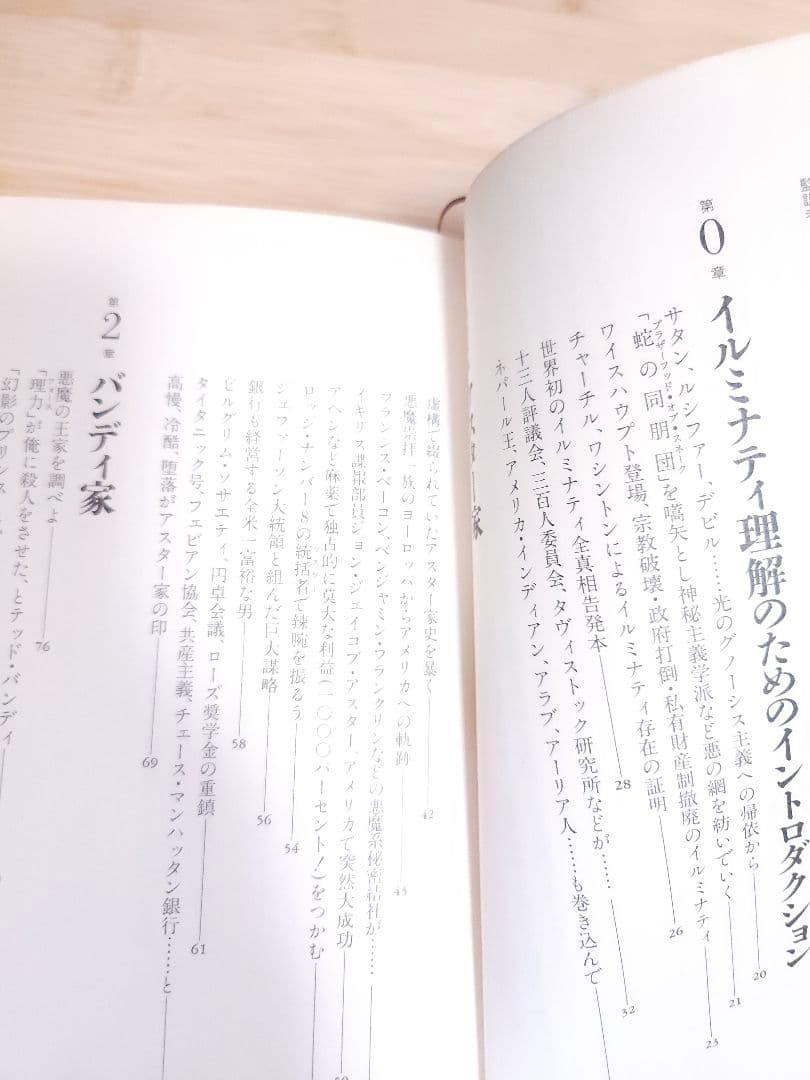 第0章 イルミナティ理解のためのイントロダクション
サタン、ルシファー、デビル……光のグノーシス主義への帰依から 20
「蛇の同朋団」を嚆矢とし神秘主義学派など悪の網を紡いでいく 21
ブラザーフッド・オブ・スネーク
ワイスハウプト登場、宗教破壊・政府打倒・私有財産制撤廃のイルミナティ 23
チャーチル、ワシントンによるイルミナティ存在の証明 26
世界初のイルミナティ全真相告発本 28
十三人評議会、三百人委員会、タヴィストック研究所などが…… 32
ネパール王、アメリカ・インディアン、アラブ、アーリア人……も巻き込んで
家
虚構で綴られていたアスター家史を暴く 42
悪魔崇拝一族のヨーロッパからアメリカへの軌跡 43
フランシス・ベーコン、ベンジャミン・フランクリンなどの悪魔系秘密結社が……
イギリス諜報部員ジョン・ジェイコブ・アスター、アメリカで突然大成功
アヘンなど麻薬で独占的に莫大な利益(一〇〇〇パーセント!)をつかむ
ロッジ・ナンバー8の統括者で辣腕を振るう 54
ジェファーソン大統領と組んだ巨大謀略 56
銀行も経営する全米一富裕な男 58
ピルグリム・ソサエティ、円卓会議、ローズ奨学金の重鎮 61
タイタニック号、フェビアン協会、共産主義、チェース・マンハッタン銀行……と
高慢、冷酷、堕落がアスター家の印 69
第2章 バンディ家
悪魔の王家を調べよ 76
「理力」が俺に殺人をさせた、とテッド・バンディ
フォース
「幻影のプリンス